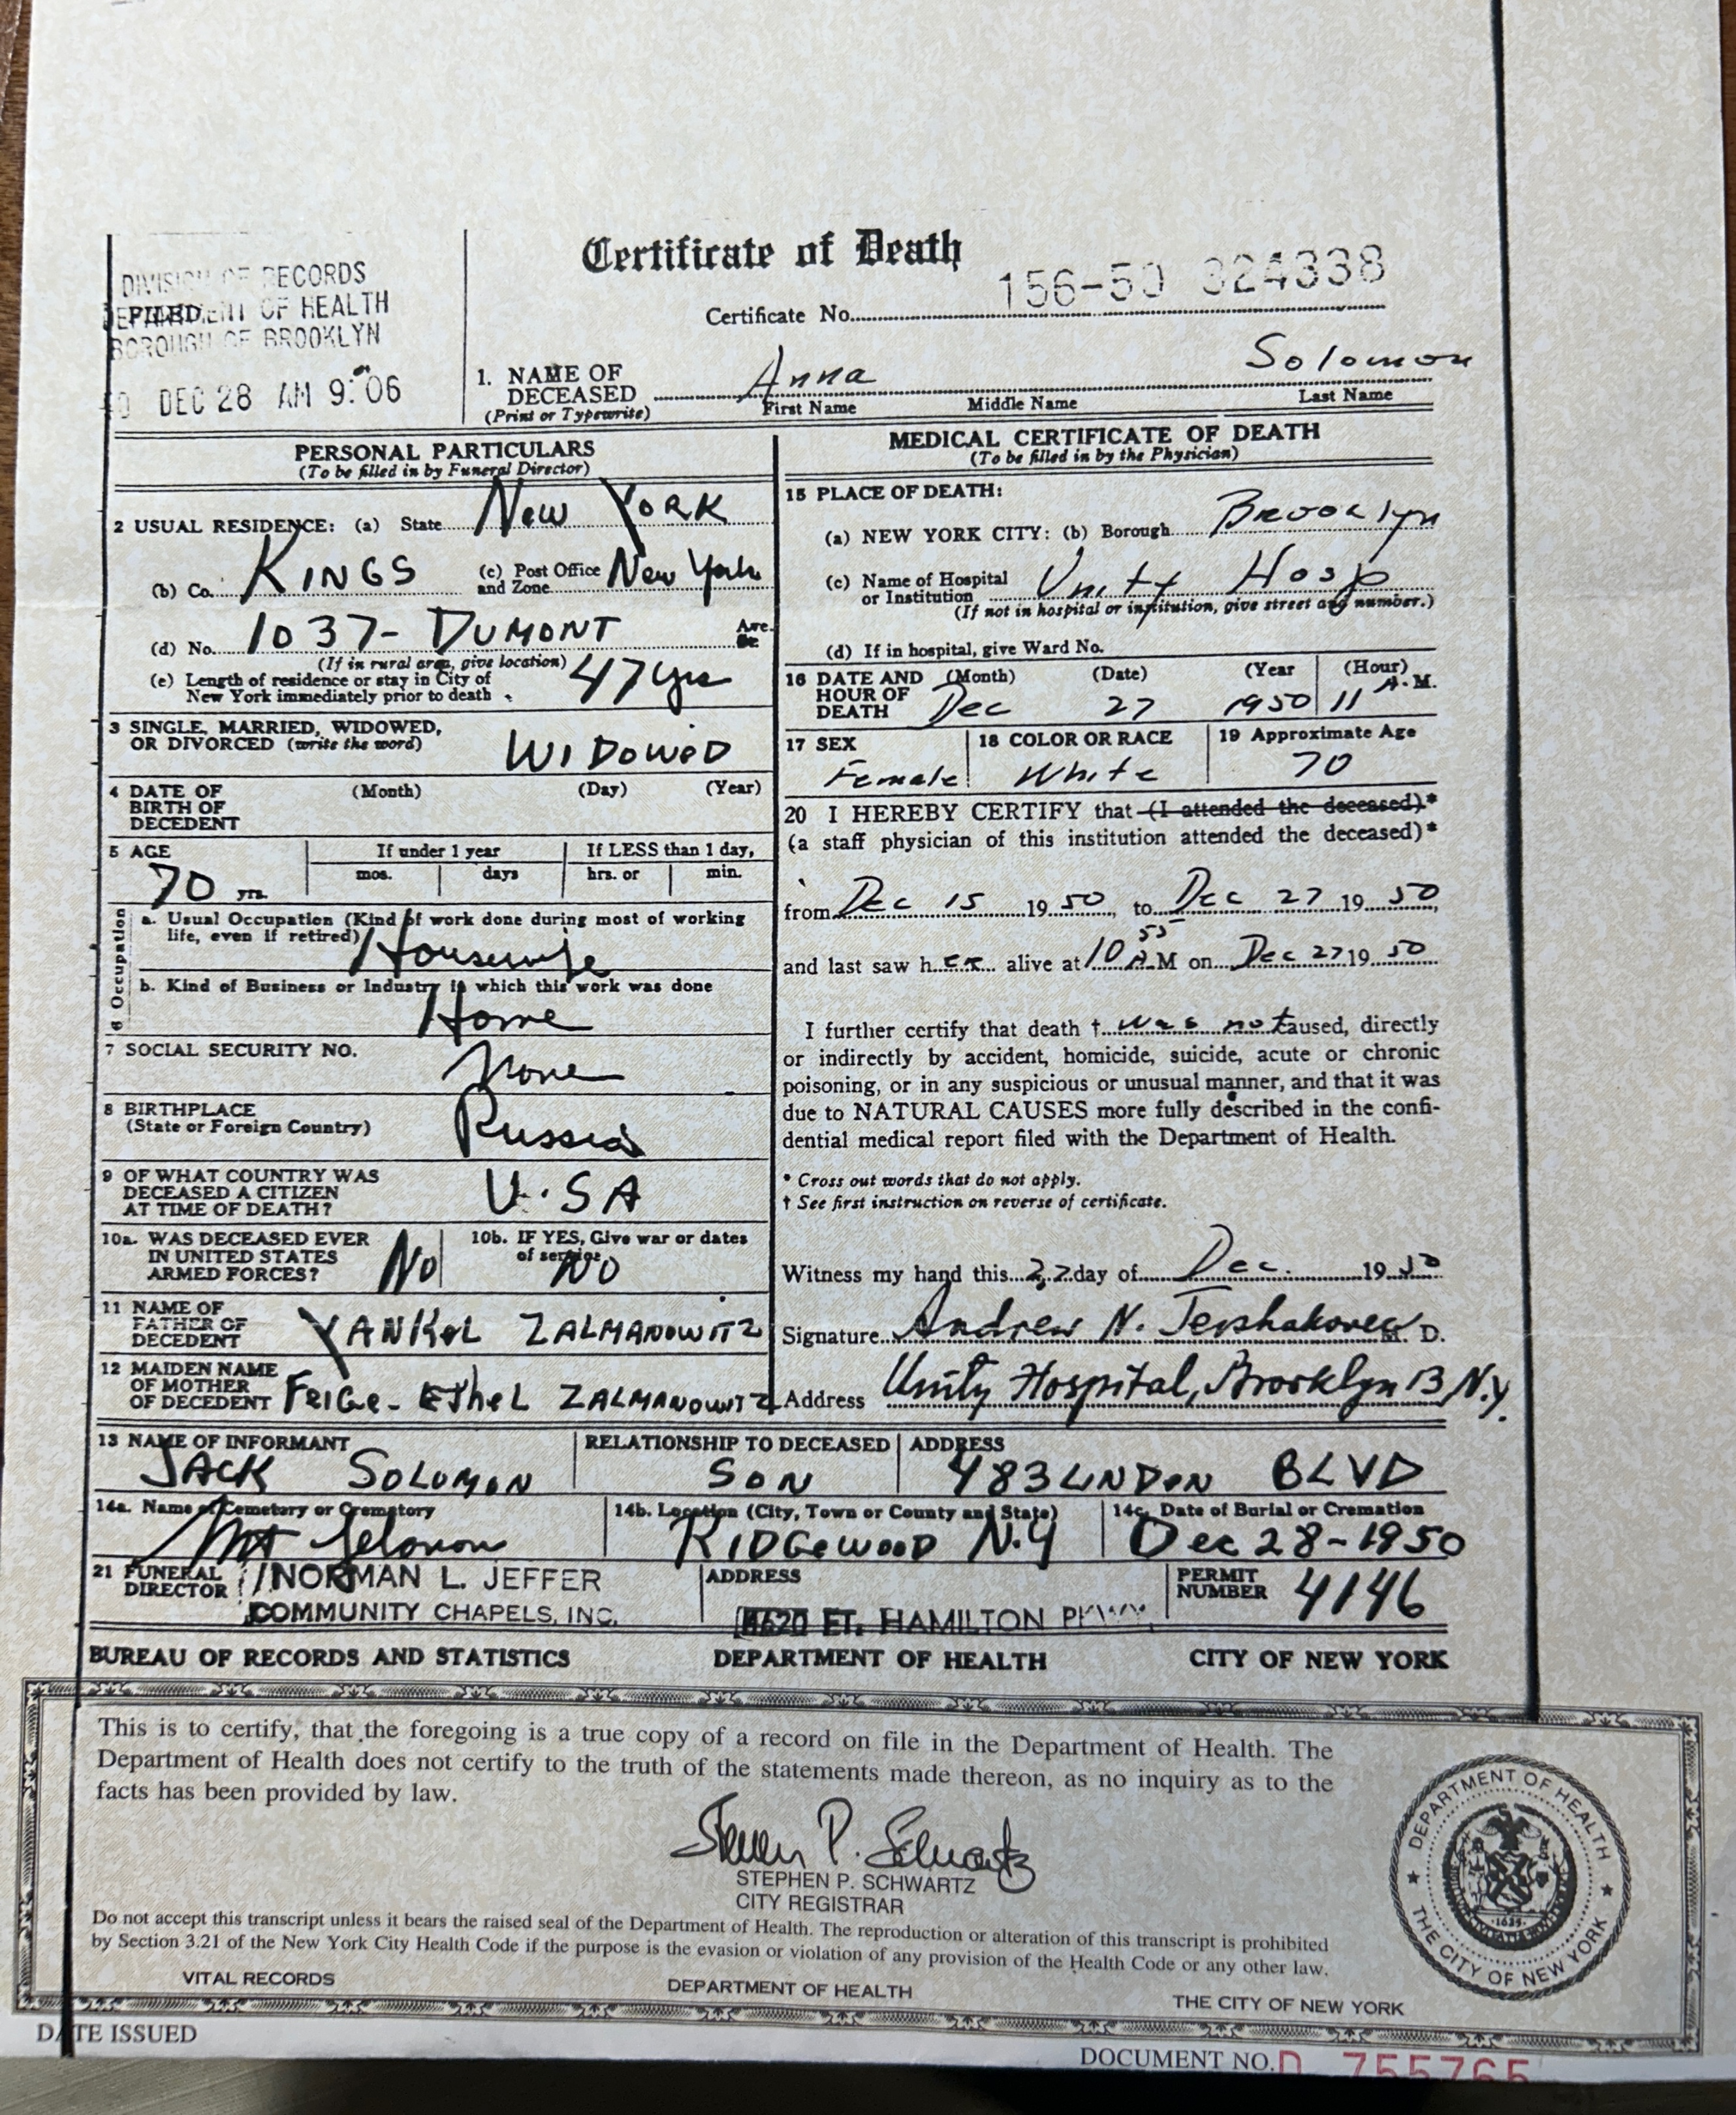 Certificate of Death
DIVISION OF RECORDS
DEPARTMENT OF HEALTH
FILED
BOROUGH OF BROOKLYN
DEC 28 AM 9:06
Certificate No. 156-50 324338
1. NAME OF DECEASED (Print or Typewrite) Anna Solomon
First Name Middle Name Last Name
PERSONAL PARTICULARS
(To be filled in by Funeral Director)
2 USUAL RESIDENCE: (a) State New York
(b) Co. KINGS (c) Post Office and Zone New York
(d) No. 1037- DUMONT Ave.
(If in rural area, give location)
(e) Length of residence or stay in City of
New York immediately prior to death 47 yrs
3 SINGLE, MARRIED, WIDOWED,
OR DIVORCED (write the word) WIDOWED
4 DATE OF BIRTH OF DECEDENT (Month) (Day) (Year)
5 AGE If under 1 year If LESS than 1 day,
mos. days hrs. or min.
70 yrs.
6 Occupation
a. Usual Occupation (Kind of work done during most of working
life, even if retired) Housewife
b. Kind of Business or Industry in which this work was done
Home
7 SOCIAL SECURITY NO. None
8 BIRTHPLACE
(State or Foreign Country) Russia
9 OF WHAT COUNTRY WAS
DECEASED A CITIZEN
AT TIME OF DEATH? U.SA
10a. WAS DECEASED EVER
IN UNITED STATES
ARMED FORCES? NO
10b. IF YES, Give war or dates
of service NO
11 NAME OF
FATHER OF
DECEDENT YANKEL ZALMANOWITZ
12 MAIDEN NAME
OF MOTHER
OF DECEDENT FEIGE- ETHEL ZALMANOWITZ
MEDICAL CERTIFICATE OF DEATH
(To be filled in by the Physician)
15 PLACE OF DEATH:
(a) NEW YORK CITY: (b) Borough Brooklyn
(c) Name of Hospital
or Institution Unity Hosp
(If not in hospital or institution, give street and number.)
(d) If in hospital, give Ward No.
16 DATE AND HOUR OF DEATH (Month) (Date) (Year) (Hour)
Dec 27 1950 11 A.M.
17 SEX 18 COLOR OR RACE 19 Approximate Age
Female White 70
20 I HEREBY CERTIFY that (I attended the deceased).*
(a staff physician of this institution attended the deceased)*
from Dec 15 1950, to Dec 27 1950,
and last saw her alive at 10 55 A M on Dec 27 1950
I further certify that death † was not caused, directly
or indirectly by accident, homicide, suicide, acute or chronic
poisoning, or in any suspicious or unusual manner, and that it was
due to NATURAL CAUSES more fully described in the confi-
dential medical report filed with the Department of Health.
* Cross out words that do not apply.
† See first instruction on reverse of certificate.
Witness my hand this 27 day of Dec. 1950
Signature Andrew N. M. D.
Address Unity Hospital, Brooklyn 13 N.Y.
13 NAME OF INFORMANT RELATIONSHIP TO DECEASED ADDRESS
JACK SOLOMON SON 483 LINDEN BLVD
14a. Name of Cemetery or Crematory 14b. Location (City, Town or County and State) 14c. Date of Burial or Cremation
Mt RIDGEWOOD N.Y Dec 28-1950
21 FUNERAL DIRECTOR NORMAN L. JEFFER
COMMUNITY CHAPELS, INC.
ADDRESS FT. HAMILTON PKWY.
PERMIT NUMBER 4146
BUREAU OF RECORDS AND STATISTICS DEPARTMENT OF HEALTH CITY OF NEW YORK
This is to certify, that the foregoing is a true copy of a record on file in the Department of Health. The
Department of Health does not certify to the truth of the statements made thereon, as no inquiry as to the
facts has been provided by law.
STEPHEN P. SCHWARTZ
CITY REGISTRAR
Do not accept this transcript unless it bears the raised seal of the Department of Health. The reproduction or alteration of this transcript is prohibited
by Section 3.21 of the New York City Health Code if the purpose is the evasion or violation of any provision of the Health Code or any other law.
VITAL RECORDS DEPARTMENT OF HEALTH THE CITY OF NEW YORK
DEPARTMENT OF HEALTH
THE CITY OF NEW YORK
DATE ISSUED
DOCUMENT NO. D 755765